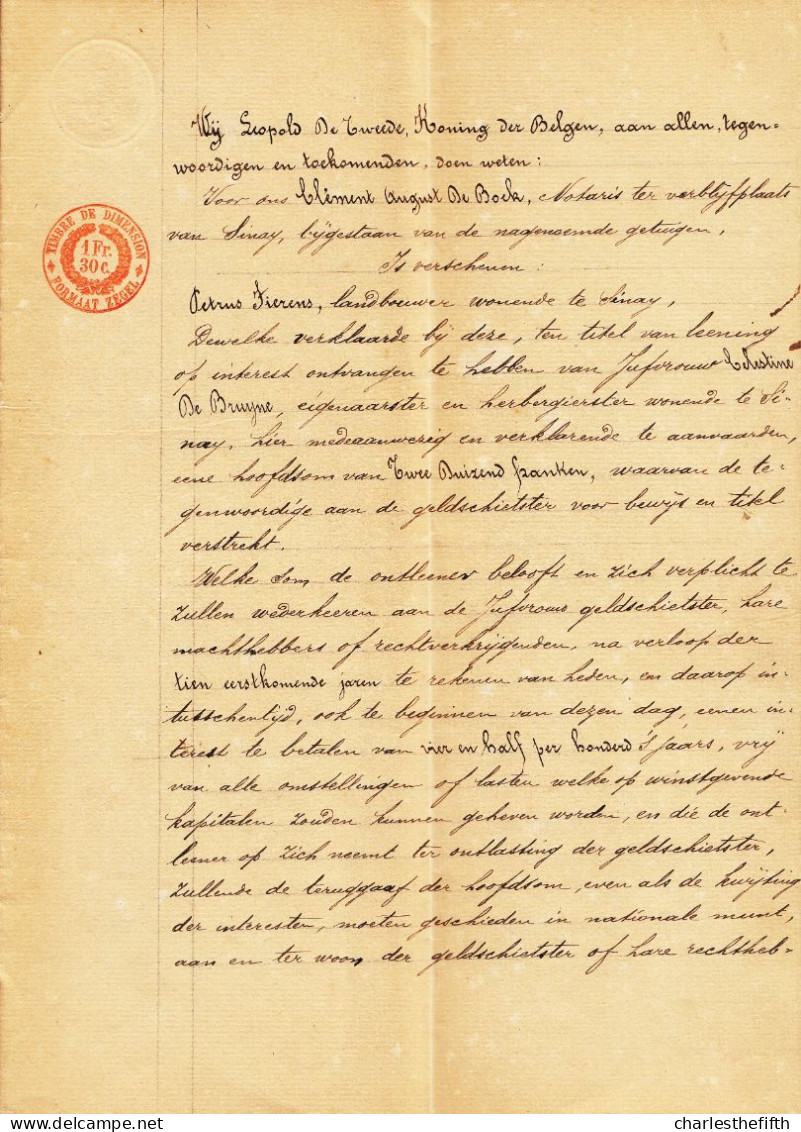 Wij Leopold De Tweede, Koning der Belgen, aan allen, tegen-
woordigen en toekomenden, doen weten:
Voor ons Clément August De Bock, Notaris ter verblijfplaats
van Sinay, bijgestaan van de nagenoemde getuigen,
Is verschenen:
Petrus Fierens, landbouwer wonende te Sinay,
Dewelke verklaarde bij deze, ten titel van leening
op interest ontvangen te hebben van Jufvrouw Celestine
De Bruyne, eigenaarster en herbergierster wonende te Si-
nay, hier medeaanwezig en verklarende te aanvaarden,
eene hoofdsom van Twee Duizend franken, waarvan de te-
genwoordige aan de geldschietster voor bewijs en titel
verstrekt.
Welke som de ontleener belooft en zich verplicht te
zullen wederkeeren aan de Jufvrouw geldschietster, hare
machthebbers of rechtverkrijgenden, na verloop der
tien eerstkomende jaren te rekenen van heden, en daarop in-
tusschentijd, ook te beginnen van dezen dag, eenen in-
terest te betalen van vier en half per honderd 's jaars, vrij
van alle omstellingen of lasten welke op winstgevende
kapitalen zouden kunnen geheven worden, en die de ont-
leener op zich neemt ter ontlasting der geldschietster,
zullende de teruggaaf der hoofdsom, even als de kwijting
der interesten, moeten geschieden in nationale munt,
aan en ter woon der geldschietster of hare rechtheb-
TIMBRE DE DIMENSION
1 Fr.
30 c.
FORMAAT ZEGEL
delcampe.net
charlesthefifth